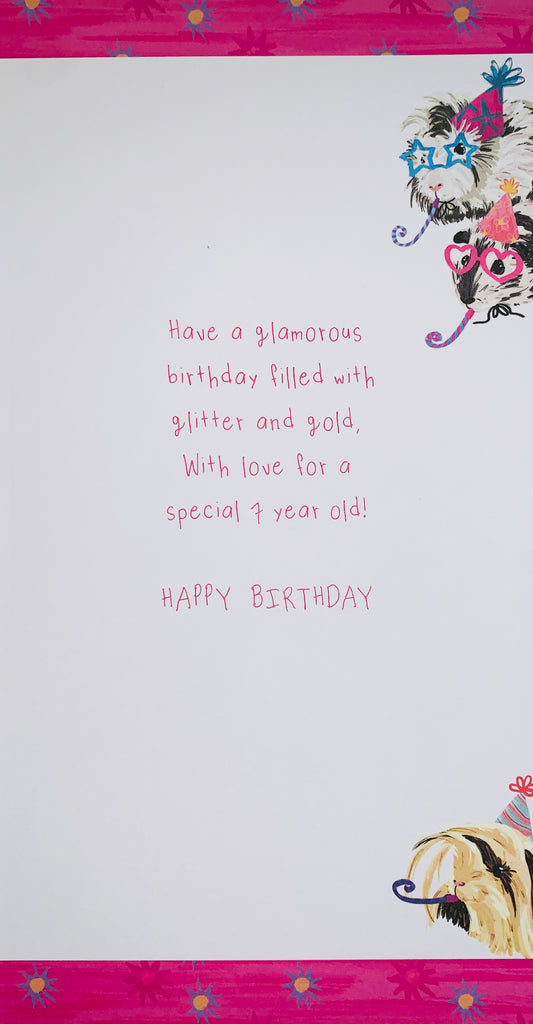 Have a glamorous
birthday filled with
glitter and gold,
With love for a
special 7 year old!
HAPPY BIRTHDAY